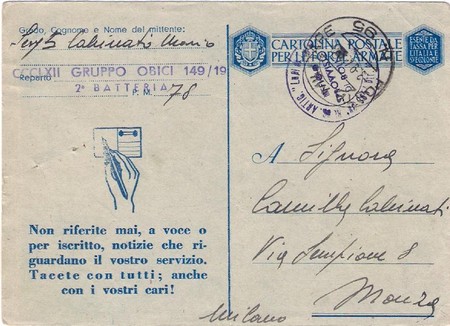 Grado, Cognome e Nome del mittente:
Serg.
Reparto
CCCLXII GRUPPO OBICI 149/19
2ª BATTERIA
P. M. 78
Non riferite mai, a voce o
per iscritto, notizie che ri-
guardano il vostro servizio.
Tacete con tutti; anche
con i vostri cari!
CARTOLINA POSTALE
PER LE FORZE ARMATE
ESENTE DA
TASSA PER
L'ITALIA E
A Signora
Camilla
Via Sempione 8
Monza
Milano